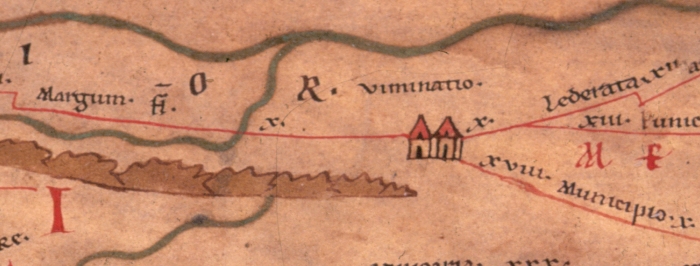 I
Margum. fl̄. O R. viminatio.
x. x.
Lederata. xii.
xiii. Punic
M F
xviii. Municipio. x.
I
xxx.